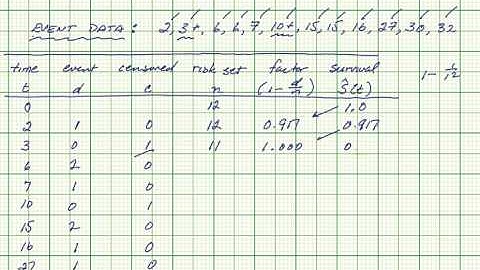 EVENT DATA : 2, 3+, 6, 6, 7, 10+, 15, 15, 16, 27, 30, 32
time event censored risk set factor survival
t d c n (1 - d/n) Ŝ(t)
1 - 1/12
0 12 1.0
2 1 0 12 0.917 0.917
3 0 1 11 1.000 0
6 2 0
7 1 0
10 0 1
15 2 0
16 1 0
27 1 0